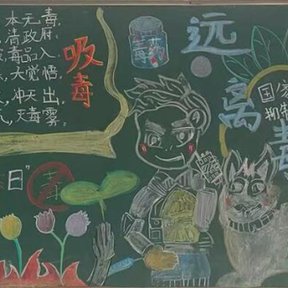 本无毒,
清政府.
毒品入
大觉悟
,冲天出,
,灭毒雾.
吸毒
远离毒
国
日"
毒